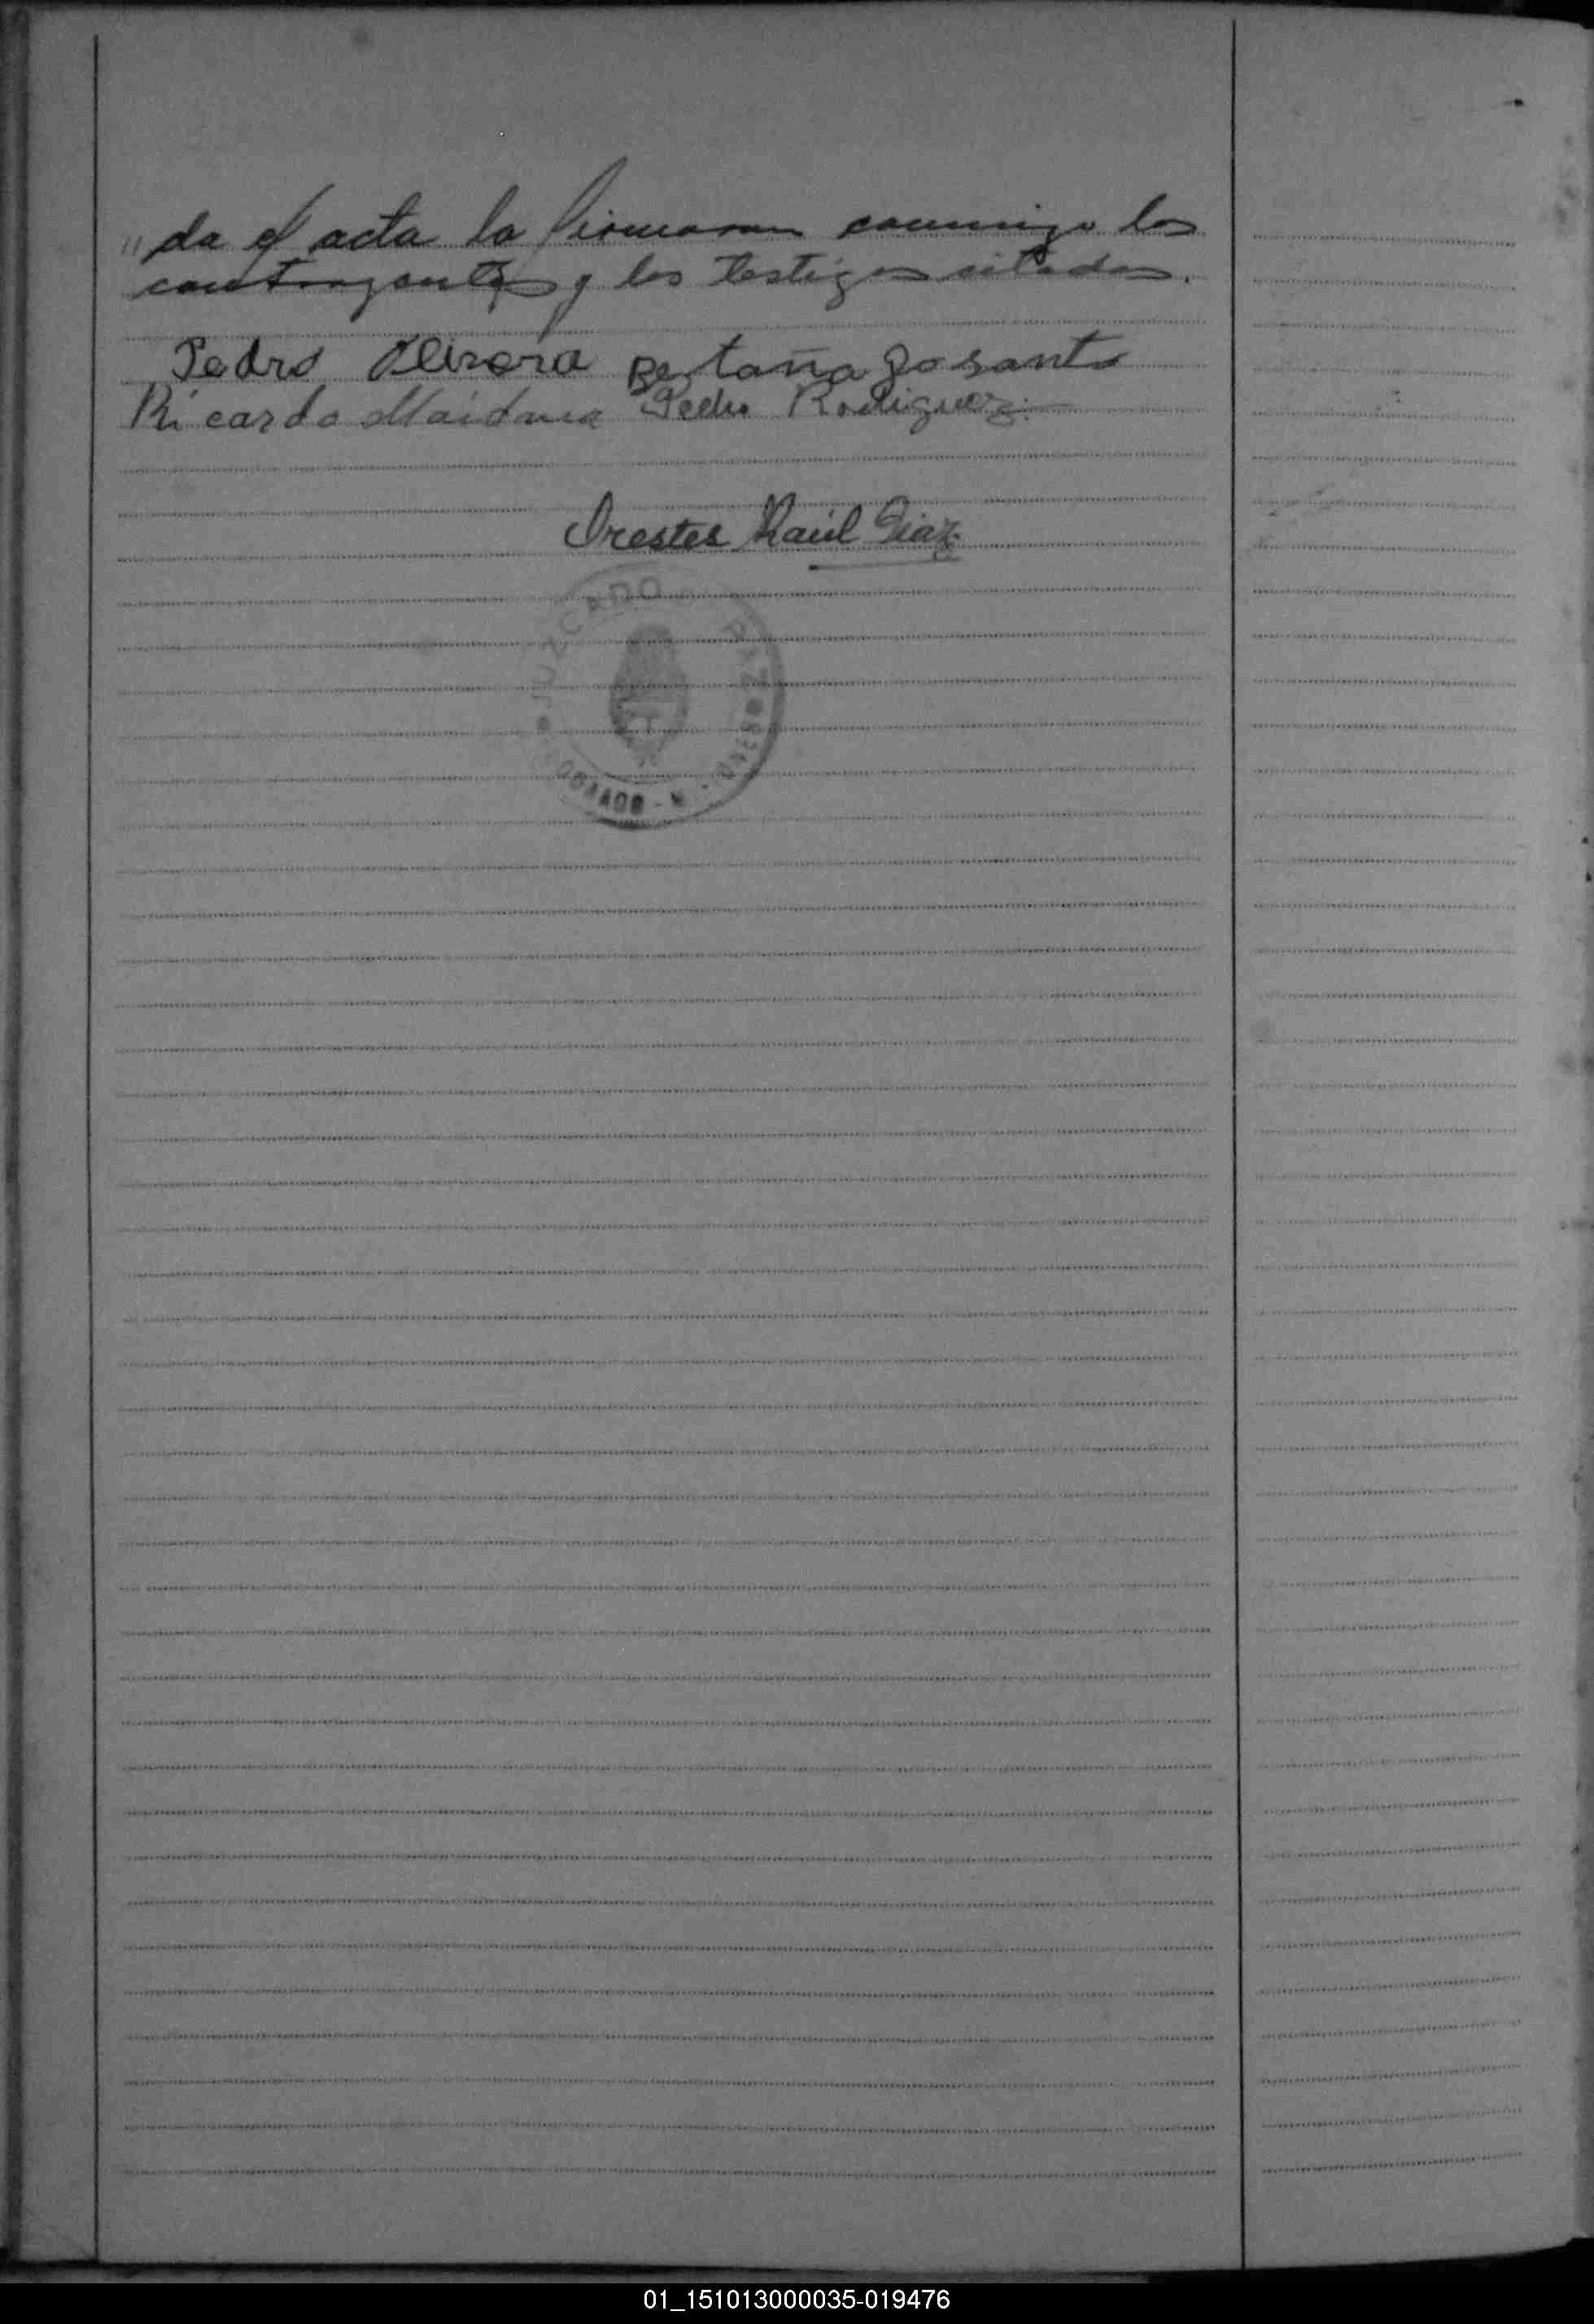 "da el acta la firmaron conmigo los
contrayentes y los testigos citados.
Pedro Olivera Bestaña Dosanto
Ricardo Maidana Pedro Rodriguez
Orestes Raúl Diaz
JUZGADO PAZ
01_151013000035-019476